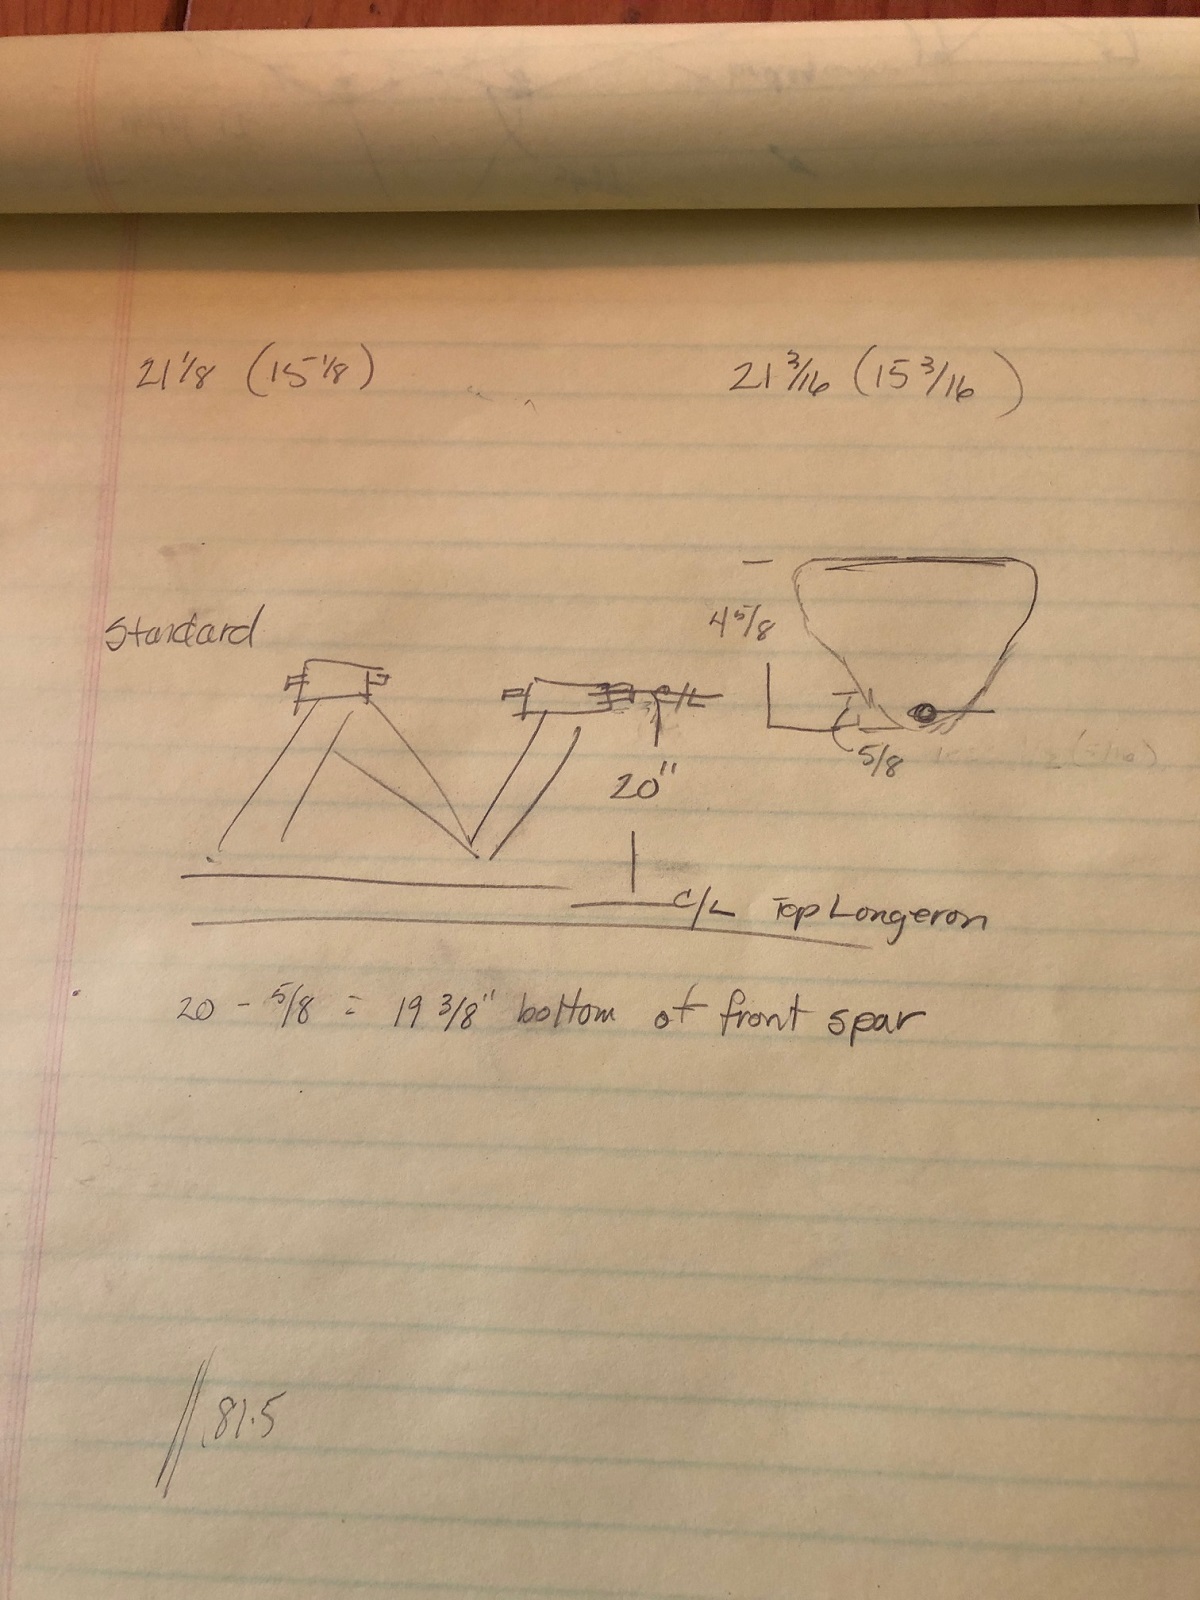 21 1/8 (15 1/8)
21 3/16 (15 3/16)
Standard
4 5/8
C/L
5/8
20"
C/L Top Longeron
20 - 5/8 = 19 3/8" bottom of front spar
81.5